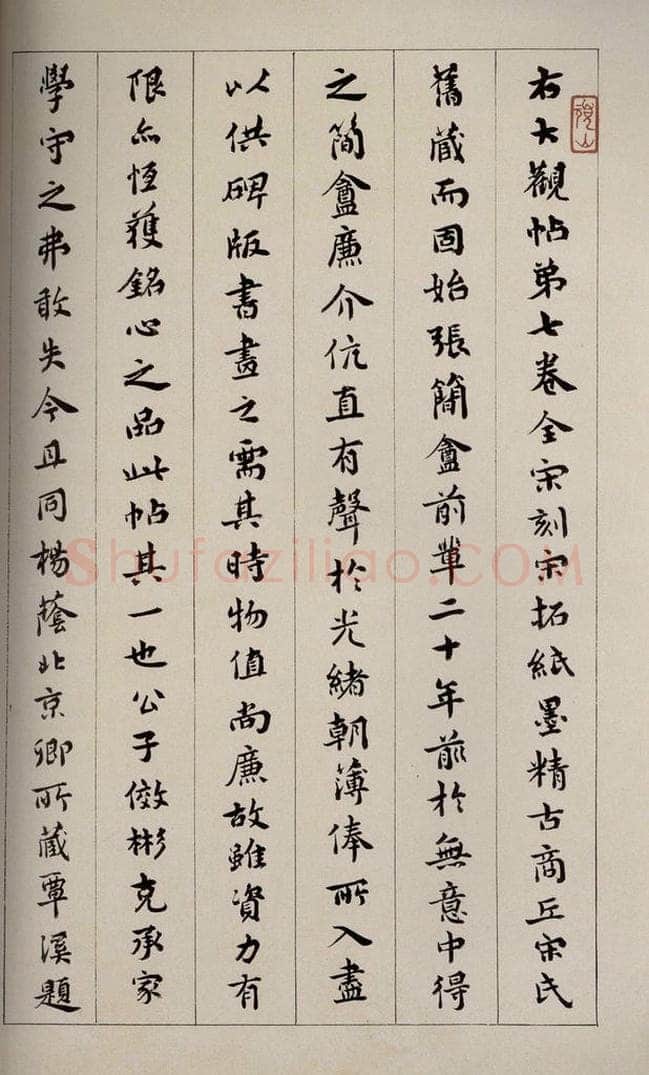 右大觀帖弟七卷全宋刻宋拓紙墨精古商丘宋氏
舊藏而固始張簡盦前輩二十年前於無意中得
之簡盦廉介伉直有聲於光緒朝薄俸所入盡
以供碑版書畫之需其時物值尚廉故雖資力有
限亦恆獲銘心之品此帖其一也公子儆彬克承家
學守之弗敢失今且同楊蔭北京卿所藏覃溪題
Shufaziliao.COM